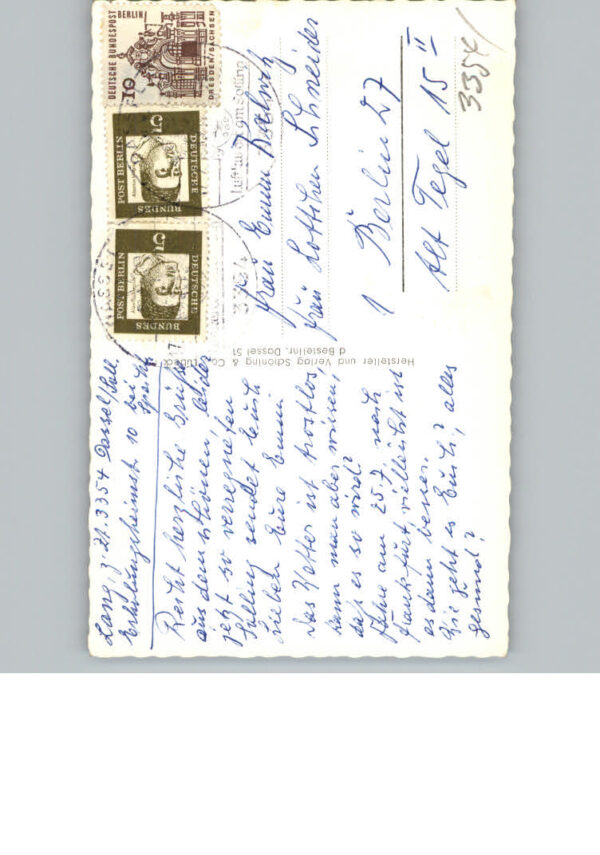 Lang, z. Zt. 3354 Dassel/Soll.
Erholungsheimstr. 10 bei
Recht herzliche Grüße
aus dem schönen, leider
jetzt so verregneten
Solling sendet Euch
Lieben Eure Emmi
Das Wetter ist trostlos,
kann man aber wissen,
daß es so wird?
Fahre am 25.7. nach
Frankfurt, vielleicht ist
es dann besser.
Wie geht es Euch?, alles
gesund?
Hersteller und Verlag Schöning & Co., Lübeck
d Bestellnr. Dassel 51
DEUTSCHE BUNDESPOST
BERLIN
10
DRESDEN/SACHSEN
5
POST BERLIN
DEUTSCHE
BUNDES
5
POST BERLIN
DEUTSCHE
BUNDES
Frau Emmi
Frau Lottchen Schneider
1 Berlin 27
Alt Tegel 15 II
3354/